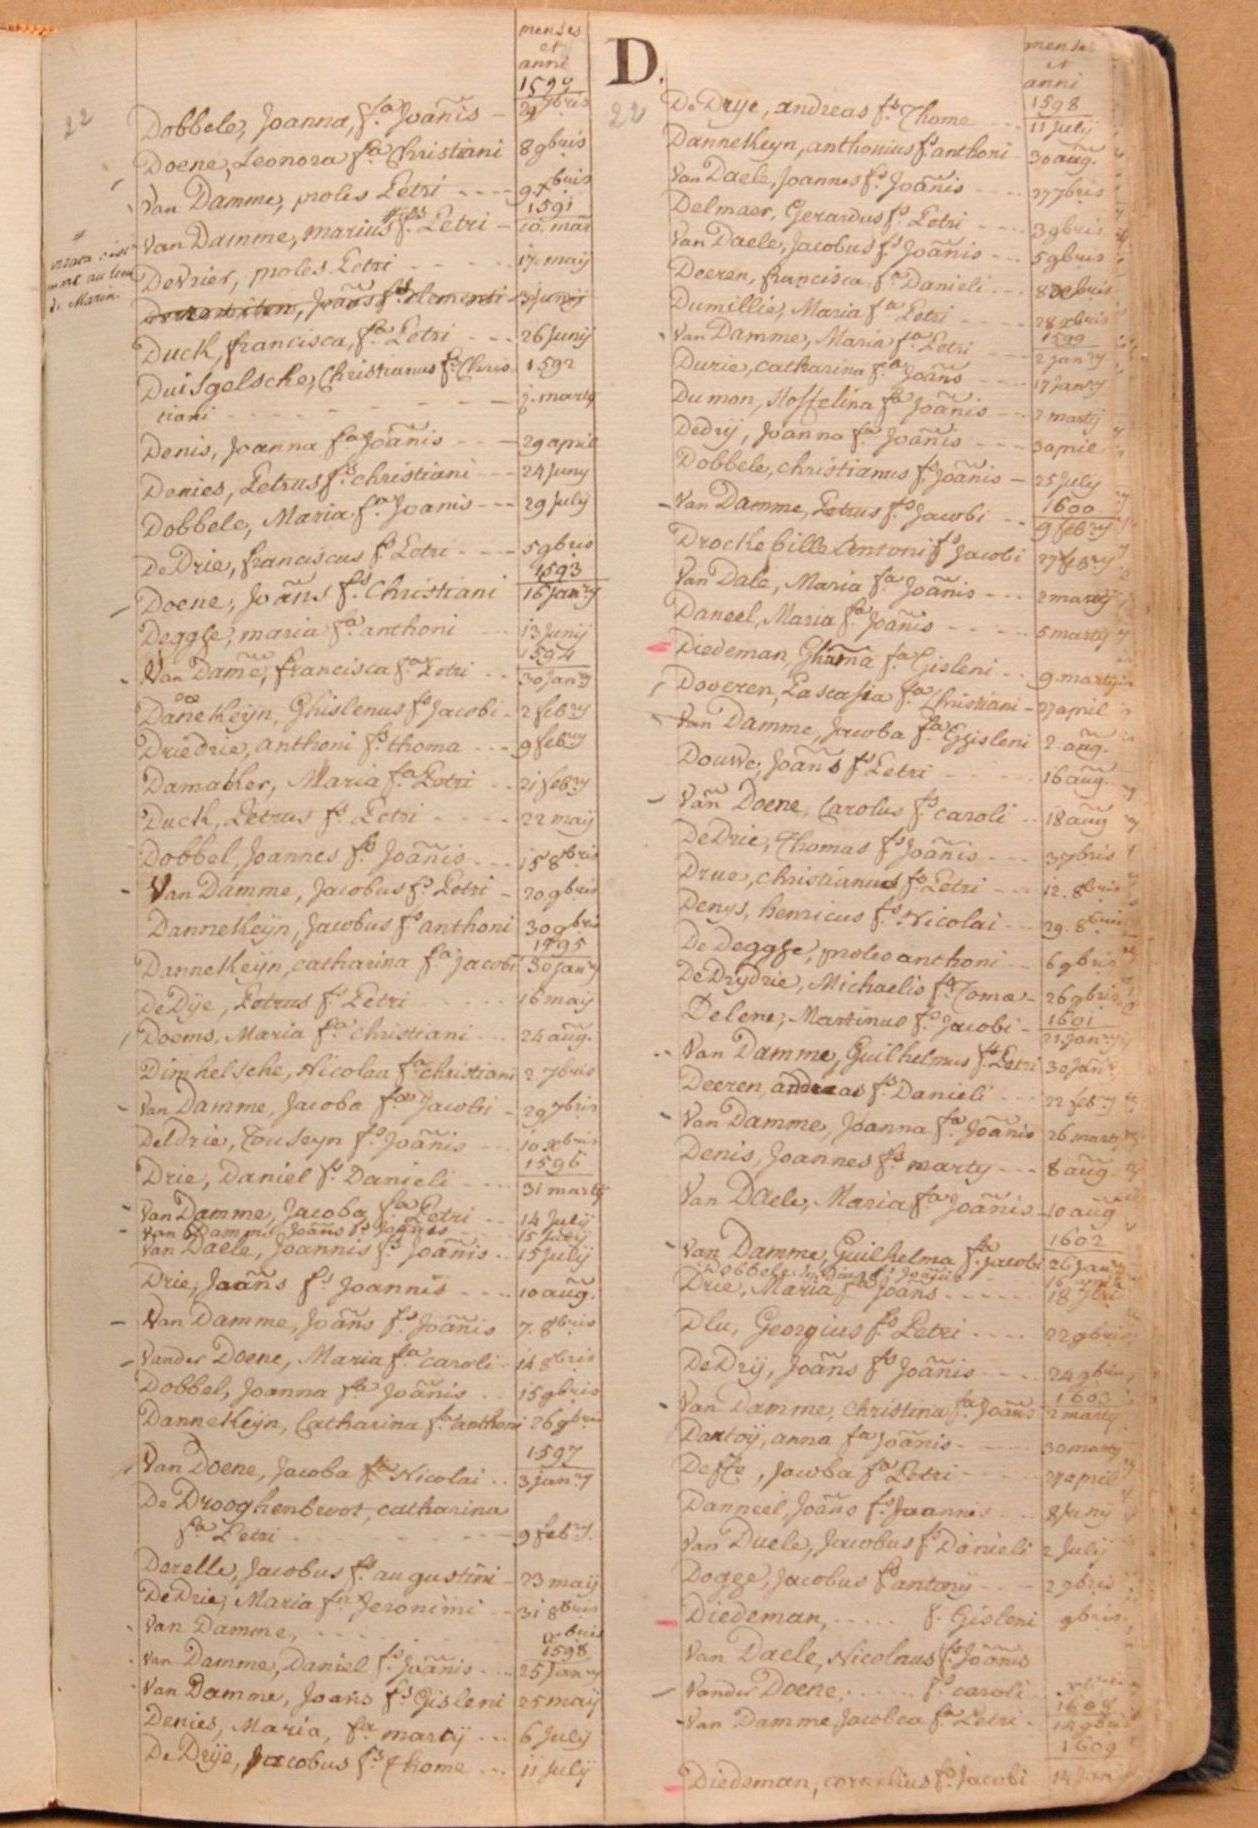 menses
et
anni
1590
22
Dobbele, Joanna, fa Joãnis - 29 7bris
Doene, Leonora fa Christiani 8 9bris
Van Damme, proles Petri - - - - 9 xbris
1591
Van Damme, marius fs Petri - 10 mar
DeVrier, proles Petri - - - - 17 may
Joãns fs clementi 3 junij
Duck, francisca, fa Petri - - - 26 Junij
Duisgelsche, Christianus fs Chris 1592
tiani - - - - - - - marty
Denis, Joanna fa Joãnis - - - 29 april
Denies, Petrus fs christiani - - - 24 Juny
Dobbele, Maria fa Joanis - - - 29 July
DeDrie, franciscus fs Petri - - - 5 9bris
1593
Doene, Joãns fs Christiani 16 Janry
Deggse, maria fa anthoni - - - 13 Junij
1594
Van Dam̃e, francisca fa Petri - - 30 Janry
Dãnekeijn, Ghislenus fs Jacobi - 2 febry
Driedrie, anthoni fs thoma - - - 9 febry
Damatker, Maria fa Petri - - 21 febry
Duck, Petrus fs Petri - - - - 22 maij
Dobbel, Joannes fs Joãnis - - - 15 8bris
Van Damme, Jacobus fs Petri - 20 9bris
Dannekeijn, Jacobus fs anthoni 30 9bris
1595
Dannekeijn, catharina fa Jacobi 30 Janry
DeDije, Petrus fs Petri - - - - 16 may
Dooms, Maria fa Christiani - - - 24 aũg.
Dimhelsche, Nicolaa fa christiani 2 7bris
Van Damme, Jacoba fa Jacobi - 29 7bris
DelDrie, Touseyn fs Joãnis - - - 10 xbris
1596
Drie, Daniel fs Danieli - - - - 31 marty
Van Damme, Jacoba fa Petri - - 14 Julij
Van Damme Joãns fs Joannes 15 July
Van Daele, Joannis fs Joãnis - - 15 July
Drie, Joãns fs Joannis - - - - 10 aũg.
Van Damme, Joãns fs Joãnis 7. 8bris
Vander Doene, Maria fa caroli - 14 8bris
Dobbel, Joanna fa Joãnis - - 15 9bris
Dannekeijn, Catharina fa anthoni 26 9bris
1597
Van Doene, Jacoba fa Nicolai - - 3 janry
De Drooghenbevot, catharina
fa Petri - - - - - - - 9 febry.
Derelle, Jacobus fs augustini - 23 maij
DeDrie, Maria fa Jeronimi - - 31 8bris
Van Damme, - - - - - - xbris
1598
Van Damme, Daniel fs Joãnis - - - 25 Janry
Van Damme, Joãns fs Gisleni 25 maij
Denies, Maria, fa marty - - - 6 July
DeDrije, Jacobus fs Thome - - - 11 July
D.
menses
et
anni
1598
22
DeDrije, andreas fs Thome - - - 11 July
Dannekeyn, anthonius fs anthoni - 30 aũg.
Van Daele, Joannes fs Joãnis - - - - 27 7bris
Delmaer, Gerardus fs Petri - - - 3 9bris
Van Daele, Jacobus fs Joãnis - - - 5 9bris
Doeren, francisca fa Danieli - - - 8 xbris
Dumillie, Maria fa Petri - - - - 28 xbris
1599
Van Damme, Maria fa Petri - - 2 janry
Durie, catharina fa Joãns - - - 17 janry
Dumon, Stoffelina fa Joãnis - - - 2 martij
Dedrij, Joanna fa Joãnis - - - 3 april
Dobbele, christianus fs Joãnis - 25 July
1600
Van Damme, Petrus fs Jacobi - - 9 febry
Drockefille Antoni fs Jacobi 27 febry
Van Dale, Maria fa Joãnis - - - 2 marty
Daneel, Maria fa Joãnis - - - - 5 marty
Diedeman, Ghãma fa Gisleni - - - 9 marty
Doveren, Pascasia fa Christiani - 27 april
Van Damme, Jacoba fa Ghisleni 2 aũg.
Douwe, Joãns fs Petri - - - - 16 aũg.
Vañ Doene, Carolus fs caroli - - 18 aũg
DeDrie, Thomas fs Joãnis - - - 3 7bris
Drue, christianus fs Petri - - - 12. 8bris
Denys, henricus fs Nicolai - - - 29. 8bris
De Deggse, proles anthoni - - - 6 9bris
DeDrijdrie, Michaelis fs Tomæ - 26 9bris
1601
Delene, Martinus fs Jacobi - 21 Janry
Van Damme, Guilhelmus fs Petri 30 Janry
Deeren, andreas fs Danieli - - - 22 febry
Van Damme, Joanna fa Joãnis 26 marty
Denis, Joannes fs marty - - - 8 aũg.
Van Daele, Maria fa Joãnis - 10 aũg
1602
Van Damme, Guilhelma fa Jacobi 26 Janry
Dobbele 16
Drie, Maria fa Joãns - - - - - 18 7bri
Dlu, Georgius fs Petri - - - - 22 9bris
DeDrij, Joãns fs Joãnis - - - - 24 9bris
1603
Van Damme, Christina fa Joãns 2 marty
Dartoij, anna fa Joãnis - - - - 30 marty
Deffe, Jacoba fa Petri - - - - 27 april
Danneel, Joãns fs Joannis - - - 8 Juny
Van Duele, Jacobus fs Danieli 2 Julij
Dogge, Jacobus fs antony - - - 2 9bris
Diedeman, - - - - fs Gisleni 9bris
Van Daele, Nicolaus fs Joãnis
Vander Doene, - - - - fs caroli - xbris
1608
Van Damme Jacoba fa Petri - 14 9bris
1609
Diedeman, cornelius fs Jacobi 14 Jan